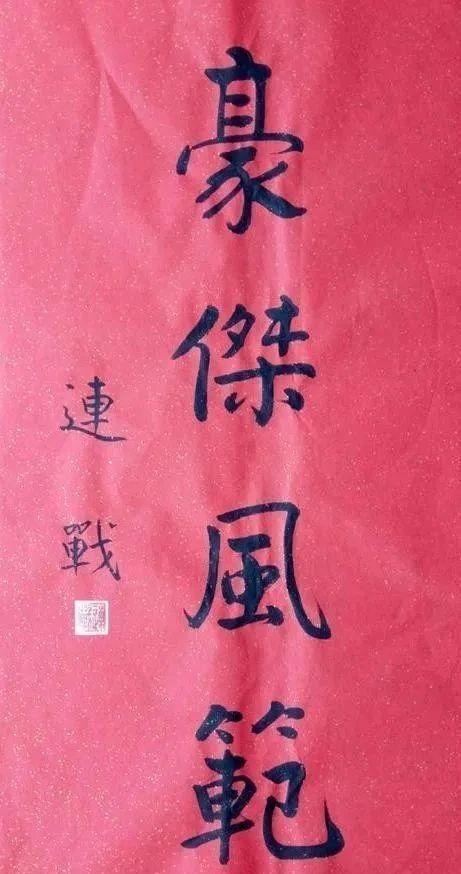 豪傑風範
連戰